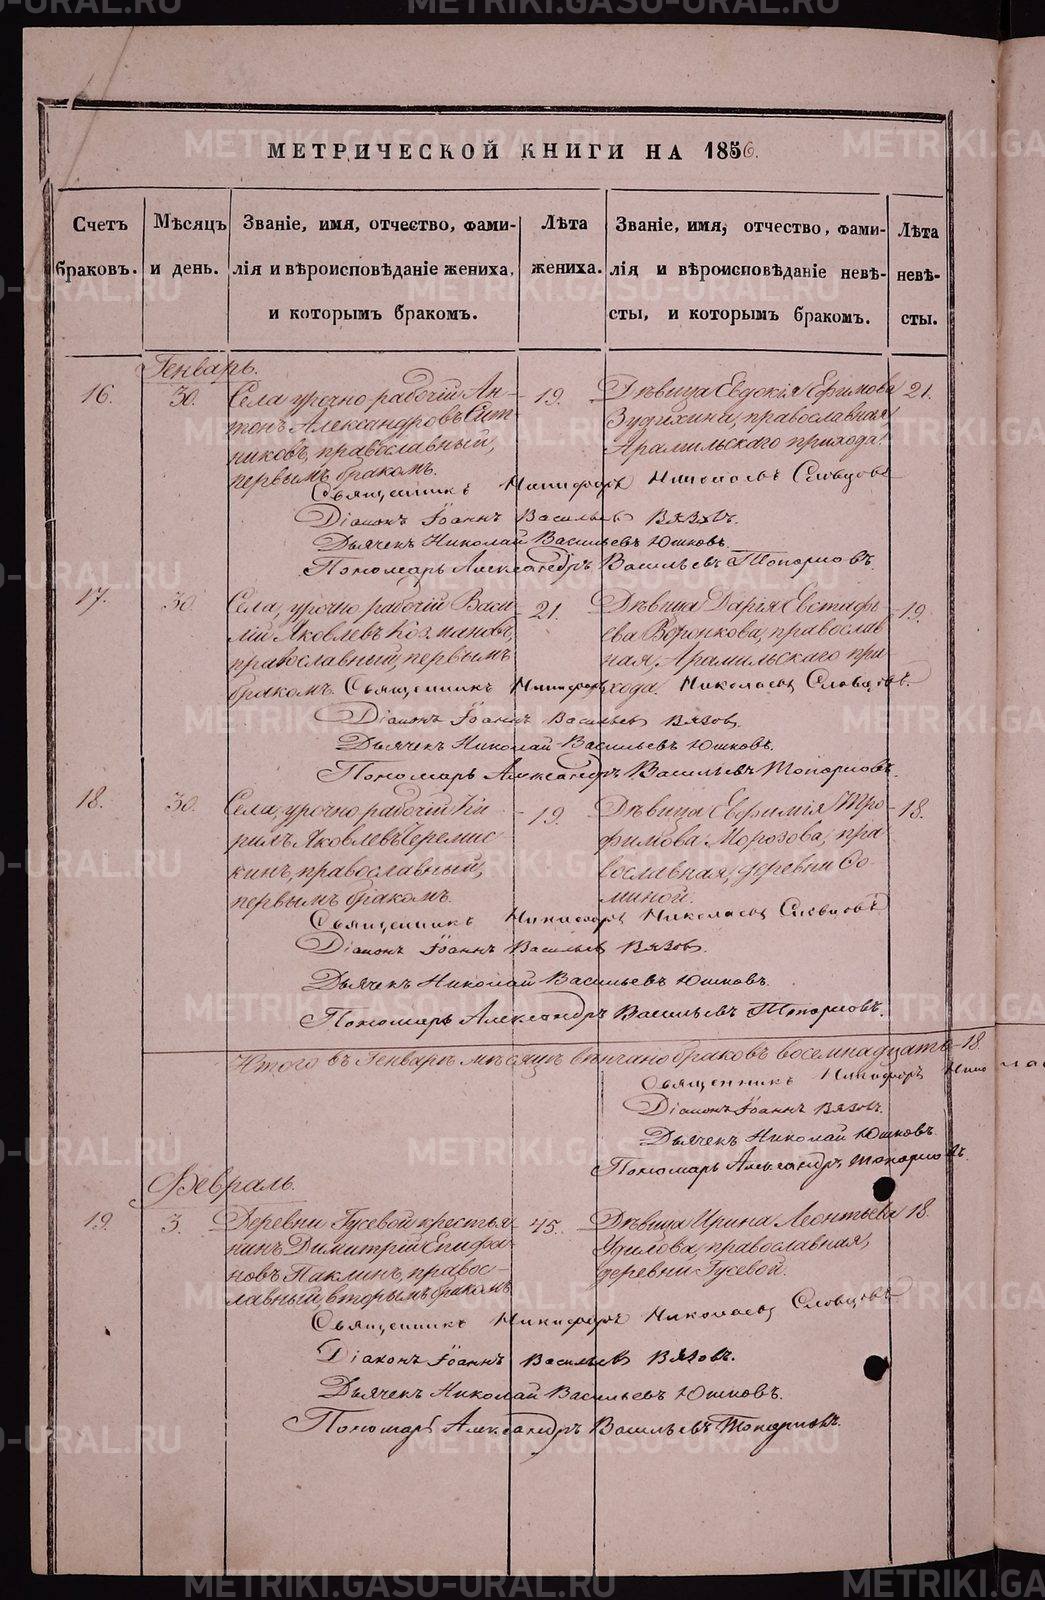 МЕТРИЧЕСКОЙ КНИГИ НА 1856.
Счетъ браковъ.
Мѣсяцъ и день.
Званіе, имя, отчество, фами-
лія и вѣроисповѣданіе жениха,
и которымъ бракомъ.
Лѣта жениха.
Званіе, имя, отчество, фами-
лія и вѣроисповѣданіе невѣ-
сты, и которымъ бракомъ.
Лѣта невѣ-
сты.
Генварь.
16. 30. Села урочно рабочій Ан- 19. Дѣвица Евдокія Ефимова 21.
тонъ Александровъ Сит- Зудихина, православная,
никовъ, православный, Арамильскаго прихода.
первымъ бракомъ.
Священникъ Никифоръ Николаевъ Словцовъ
Діаконъ Іоаннъ Васильевъ Вязовъ.
Дьячекъ Николай Васильевъ Юшковъ.
Пономарь Александръ Васильевъ Топорковъ.
17. 30. Села, урочно рабочій Васи- 21. Дѣвица Дарія Евстафь- 19.
лій Яковлевъ Козмановъ, ева Воронкова, православ
православный, первымъ ная, Арамильскаго при
бракомъ. хода.
Священникъ Никифоръ Николаевъ Словцовъ.
Діаконъ Іоаннъ Васильевъ Вязов.
Дьячекъ Николай Васильевъ Юшковъ.
Пономарь Александръ Васильевъ Топорковъ.
18. 30. Села, урочно рабочій Ки- 19. Дѣвица Евфимія Тро 18.
рилъ Яковлевъ Черемис фимова Морозова, пра
кинъ, православный, вославная, деревни Фо
первымъ бракомъ. миной.
Священникъ Никифоръ Николаевъ Словцовъ
Діаконъ Іоаннъ Васильевъ Вязов.
Дьячекъ Николай Васильевъ Юшковъ.
Пономарь Александръ Васильевъ Топорковъ.
Итого въ Генварѣ мѣсяцѣ вѣнчано браковъ восемнадцать 18.
Священникъ Никифоръ Нико
Діаконъ Іоаннъ Вязовъ.
Дьячекъ Николай Юшковъ.
Пономарь Александръ Топорковъ.
Февраль.
19. 3. Деревни Гусевой крестья- 45. Дѣвица Ирина Леонтьева 18.
нинъ Димитрій Епифа- Удилова, православная,
новъ Паклинъ, правос- деревни Гусевой.
лавный, вторымъ бракомъ
Священникъ Никифоръ Николаевъ Словцовъ
Діаконъ Іоаннъ Васильевъ Вязовъ.
Дьячекъ Николай Васильевъ Юшковъ.
Пономарь Александръ Васильевъ Топорковъ.
METRIKI.GASO-URAL.RU